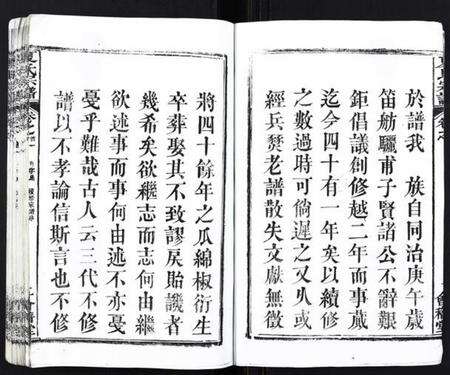 於譜我 族自同治庚午歲
笛舫驪甫子賢諸公不辭艱
鉅倡議創修越二年而事蕆
迄今四十有一年矣以續修
之數過時可倘遲之又久或
經兵燹老譜散失文獻無徵
將四十餘年之瓜綿椒衍生
卒葬娶其不致謬戾貽譏者
幾希矣欲繼志而志何由繼
欲述事而事何由述不亦憂
憂乎難哉古人云三代不修
譜以不孝論信斯言也不修
夏氏宗譜
卷之